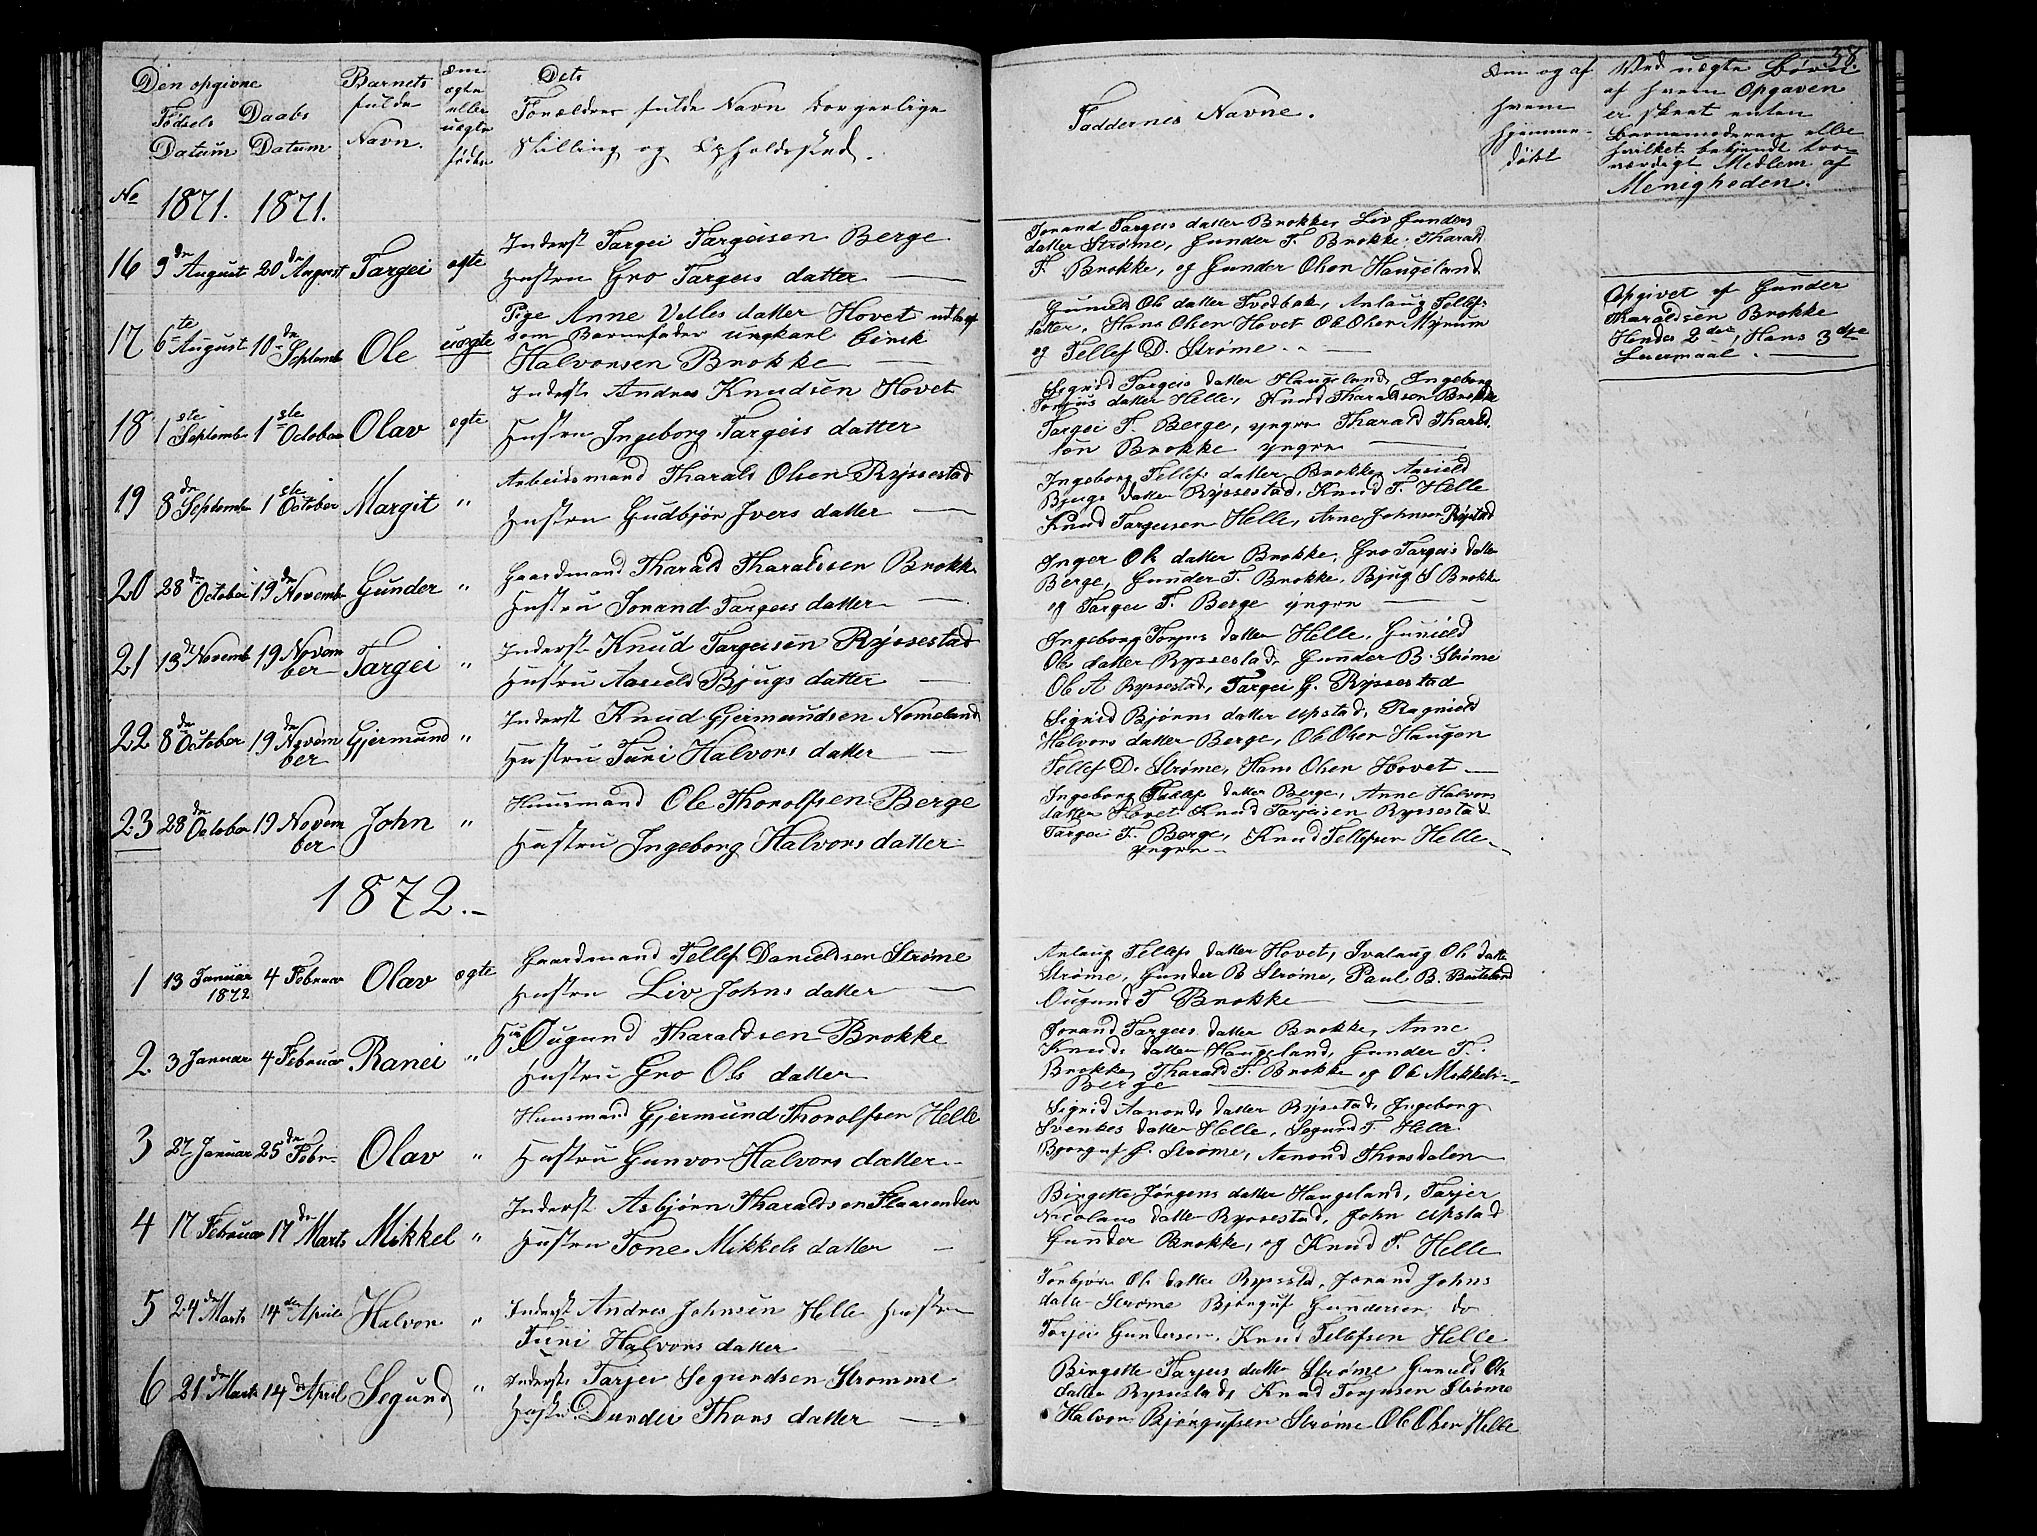 38.
Den opgivne
Fødsels Datum
Daabs Datum
Barnets fulde Navn.
Om ægte eller uægte födte
Dets
Forældres fulde Navn borgerlige
Stilling og Opholdssted.
Faddernes Navne.
Om og af hvem hjemmedöbt
Ved uægte Börn
af hvem Opgaven
er skeet enten
Barnemoderen eller
hvilket bekjendt tro-
værdigt Medlem af
Menigheden.
No 1871. 1871.
16 9de August 20de August Targei egte Inderst Targei Targeisen Berge
Hustru Gro Targeis datter
Jorand Targeis datter Brokke, Liv Gunders
datter Strøme, Gunder T. Brokke, Tharald
T. Brokke, og Gunder Olsen Haugeland
17 6te August 10de Septemb Ole uægte Pige Anne Velles datter Hovet udlagt
som Barnefader ungkarl Eirik
Halvorsen Brokke
Gunild Ols datter Tvedbak, Anlaug Tellefs
datter, Hans Olsen Hovet Ole Olsen Myrum
og Tellef D. Strøme
Opgivet af Gunder
Tharaldsen Brokke
Hendes 2det, Hans 3die
Leiermaal.
18 1ste Septembr 1ste October Olav egte Inderst Andres Knudsen Hovet
Hustru Ingeborg Targeis datter
Sigrid Targeis datter Haugeland, Ingeborg
Torjus datter Helle, Knud Tharaldsen Brokke
Targei T. Berge, yngre Tharald Tharald
son Brokke yngre
19 8de Septembr 1ste October Margit " Arbeidsmand Tharald Olsen Ryssestad
Hustru Gudbjør Ivers datter
Ingeborg Tellefs datter Brokke, Aasield
Bjugs datter Ryssestad, Knud T. Helle
Knud Targeisen Helle, Arne Johnsen Rystad
20 28de October 19de Novembr Gunder " Gaardmand Tharald Tharaldsen Brokke
Hustru Jorand Targeis datter
Inger Ols datter Brokke, Gro Targeis datter
Berge, Gunder T. Brokke, Bjug S Brokke
og Targei T. Berge yngre
21 13de Novemb 19 Novem
ber Targei " Inderst Knud Targeisen Ryssestad
Hustru Aasield Bjugs datter
Ingeborg Torjus datter Helle, Gunield
Ols datter Ryssestad, Gunder B. Strøme
Ole A Ryssestad, Targei G. Ryssestad
22 8de October 19de Novem
ber Gjermund " Inderst Knud Gjermundsen Nomeland
Hustru Turi Halvors datter
Sigrid Bjørns datter Upstad, Ragnield
Halvors datter Berge, Ole Olsen Haugen
Tellef D. Strøme, Hans Olsen Hovet
23 28de October 19 Novem
ber John " Huusmand Ole Thorolfsen Berge
Hustru Ingeborg Halvors datter
Ingeborg datter Berge, Anne Halvors
datter Hovet Knud Tarjeisen Ryssestad
Targei T. Berge, Knud Tellefsen Helle
yngre
1872.
1 13 Januar
1872 4 Februar Olav egte Gaardmand Tellef Danieldsen Strøme
Hustru Liv Johns datter
Anlaug Tellefs datter Hovet, Ols datter
Strøme, Gunder B Strøme, Paul B.
Ougund T Brokke
2 3 Januar 4 Februar Ranei " Ougund Tharaldsen Brokke
Hustru Gro Ols datter
Jorand Targeis datter Brokke, Anne
Knuds datter Haugeland, Gunder T.
Brokke, Tharald T. Brokke og Ole Mikkels
Berge
3 27 Januar 25de Febr Olav " Huusmand Gjermund Thorolfsen Helle
Hustru Gunvor Halvors datter
Sigrid Aanonds datter Rysstad, Ingeborg
Svenkes datter Helle, Segund T. Helle
Bjorguf G. Strøme, Aanond Thorsdalen
4 17 Februar 17de Marts Mikkel " Inderst Asbjørn Tharaldsen Flaarenden
Hustru Tone Mikkels datter
Birgette Jörgens datter Haugeland, Tarjer
Nicolaus datter Ryssestad, John Upstad
Gunder Brokke, og Knud T. Helle
5 24de Marts 14de Aprils Halvor " Inderst Andres Johnsen Helle Hustru
Turi Halvors datter
Torbjör Ols datter Rysstad, Jorand Johns
datter Strøme Bjorguf Gundersen do
Torjei Gundersen, Knud Telefsen Helle
6 21de Marts 14de April Segund " Inderste Tarjei Segundsen Stromme
Hustru Dundei Thors datter
Birgette Tarjeis datter Strøme Gunild Ols
datter Ryssestad, Knud Torjusen Strøme
Halvor Bjørgufsen Strøme Ole Olsen Helle